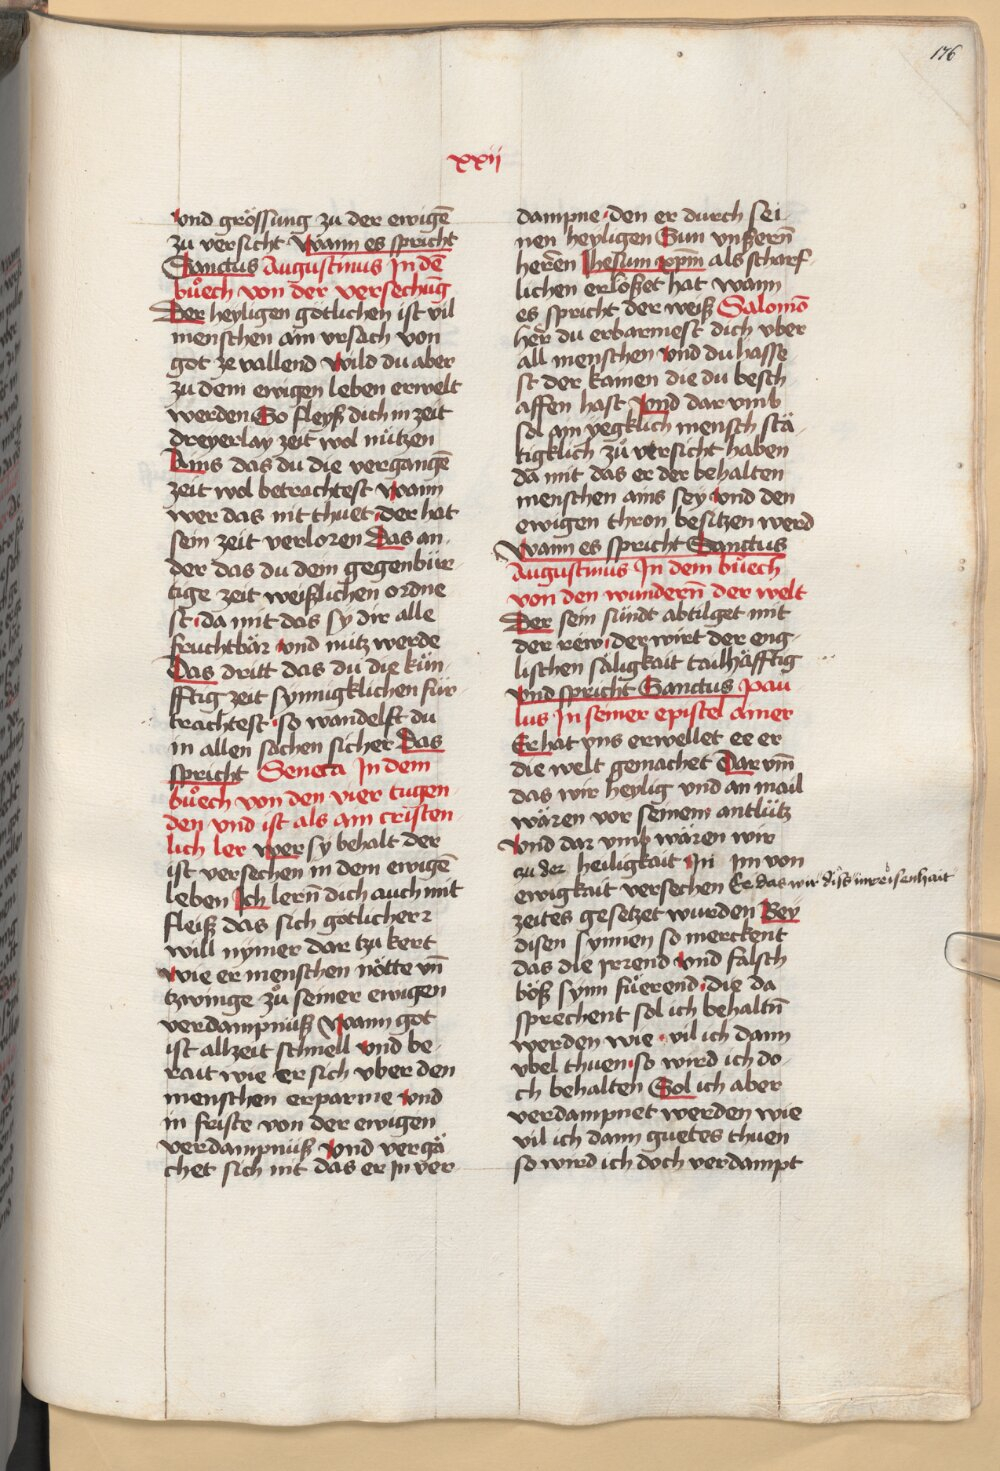 176
xxij
vnd grössung zu der ewigē
zu versicht Wann es spricht
Sanctus Augustinus In dē
bůech von der versechūg
Der heyligen gotlichen ist vil
menschen ain vrsach von
got ze vallend Wild du aber
zu dem ewigen leben erwelt
werden So fleyß dich in zeit
dreyerlay zeit wol nützen
Ains das du die vergangē
zeit wol betrachtest Wann
wer das nit thuet der hat
sein zeit verloren Das an-
der das du dem gegenbür-
tige zeit weißlichen ordne
st da mit das sy dir alle
fruchtbär vnd nutz werde
Das dritt das du die kün-
fftig zeit synnigklichen für-
trachtest so wandelst du
in allen sachen sicher Das
spricht Seneca In dem
bůech von den vier tugen
den vnd ist als ain cristen
lich ler Wer sy behalt der
ist versechen in dem ewigē
leben Ich lern̄ dich auch mit
fleiß das sich gotlicher
will nymer dar tzu kert
Wie er menschen nötte vn̄
tzwinge zů seiner ewigen
verdampnuß Wann got
ist allzeit schnell vnd be-
rait wie er sich vber den
menschen erparme vnd
in friste von der ewigen
verdampnuß vnd vergä
chet sich nit das er In ver
dampne den er durch sei
nen heyligen Sun vnßern̄
herēn Jhesum xpm̄ als scharf-
lichen erlößet hat wann
es spricht der weiß Salomō
her̄ du erbarmest dich vber
all menschen vnd du hasse
st der kainen die du besch
affen hast Vnd dar vmb
sol ain yegklich mensch stä-
tigklich zů versicht haben
da mit das er der behalten
menschen ains sey vnd den
ewigen thron besitzen werd
Wann es spricht Sanctus
Augustinus In dem bůech
von den wundern̄ der welt
Der sein sündt abtilget mit
der rew der wirt der eng-
lischen säligkait tailhäfftig
Vnd spricht Sanctus pau
lus In seiner epistel ainer
Er hat vns erwellet ee er
die welt gemachet Dar vm̄
das wir heylig vnd an mail
wären vor seinem antlütz
Vnd dar vmb wären wir
zu der heiligkait In im von
ewigkait versechen Ee das wir
zeites gesetzet wurden Bey
disen synnen so merckent
das die irrend vnd falsch
böß synn fůerend die da
sprechent sol ich behaltn̄
werden wie vil ich dann
vbel thuen so wird ich do-
ch behalten Sol ich aber
verdampnet werden wie
vil ich dann guetes thuen
so wird ich doch verdampt